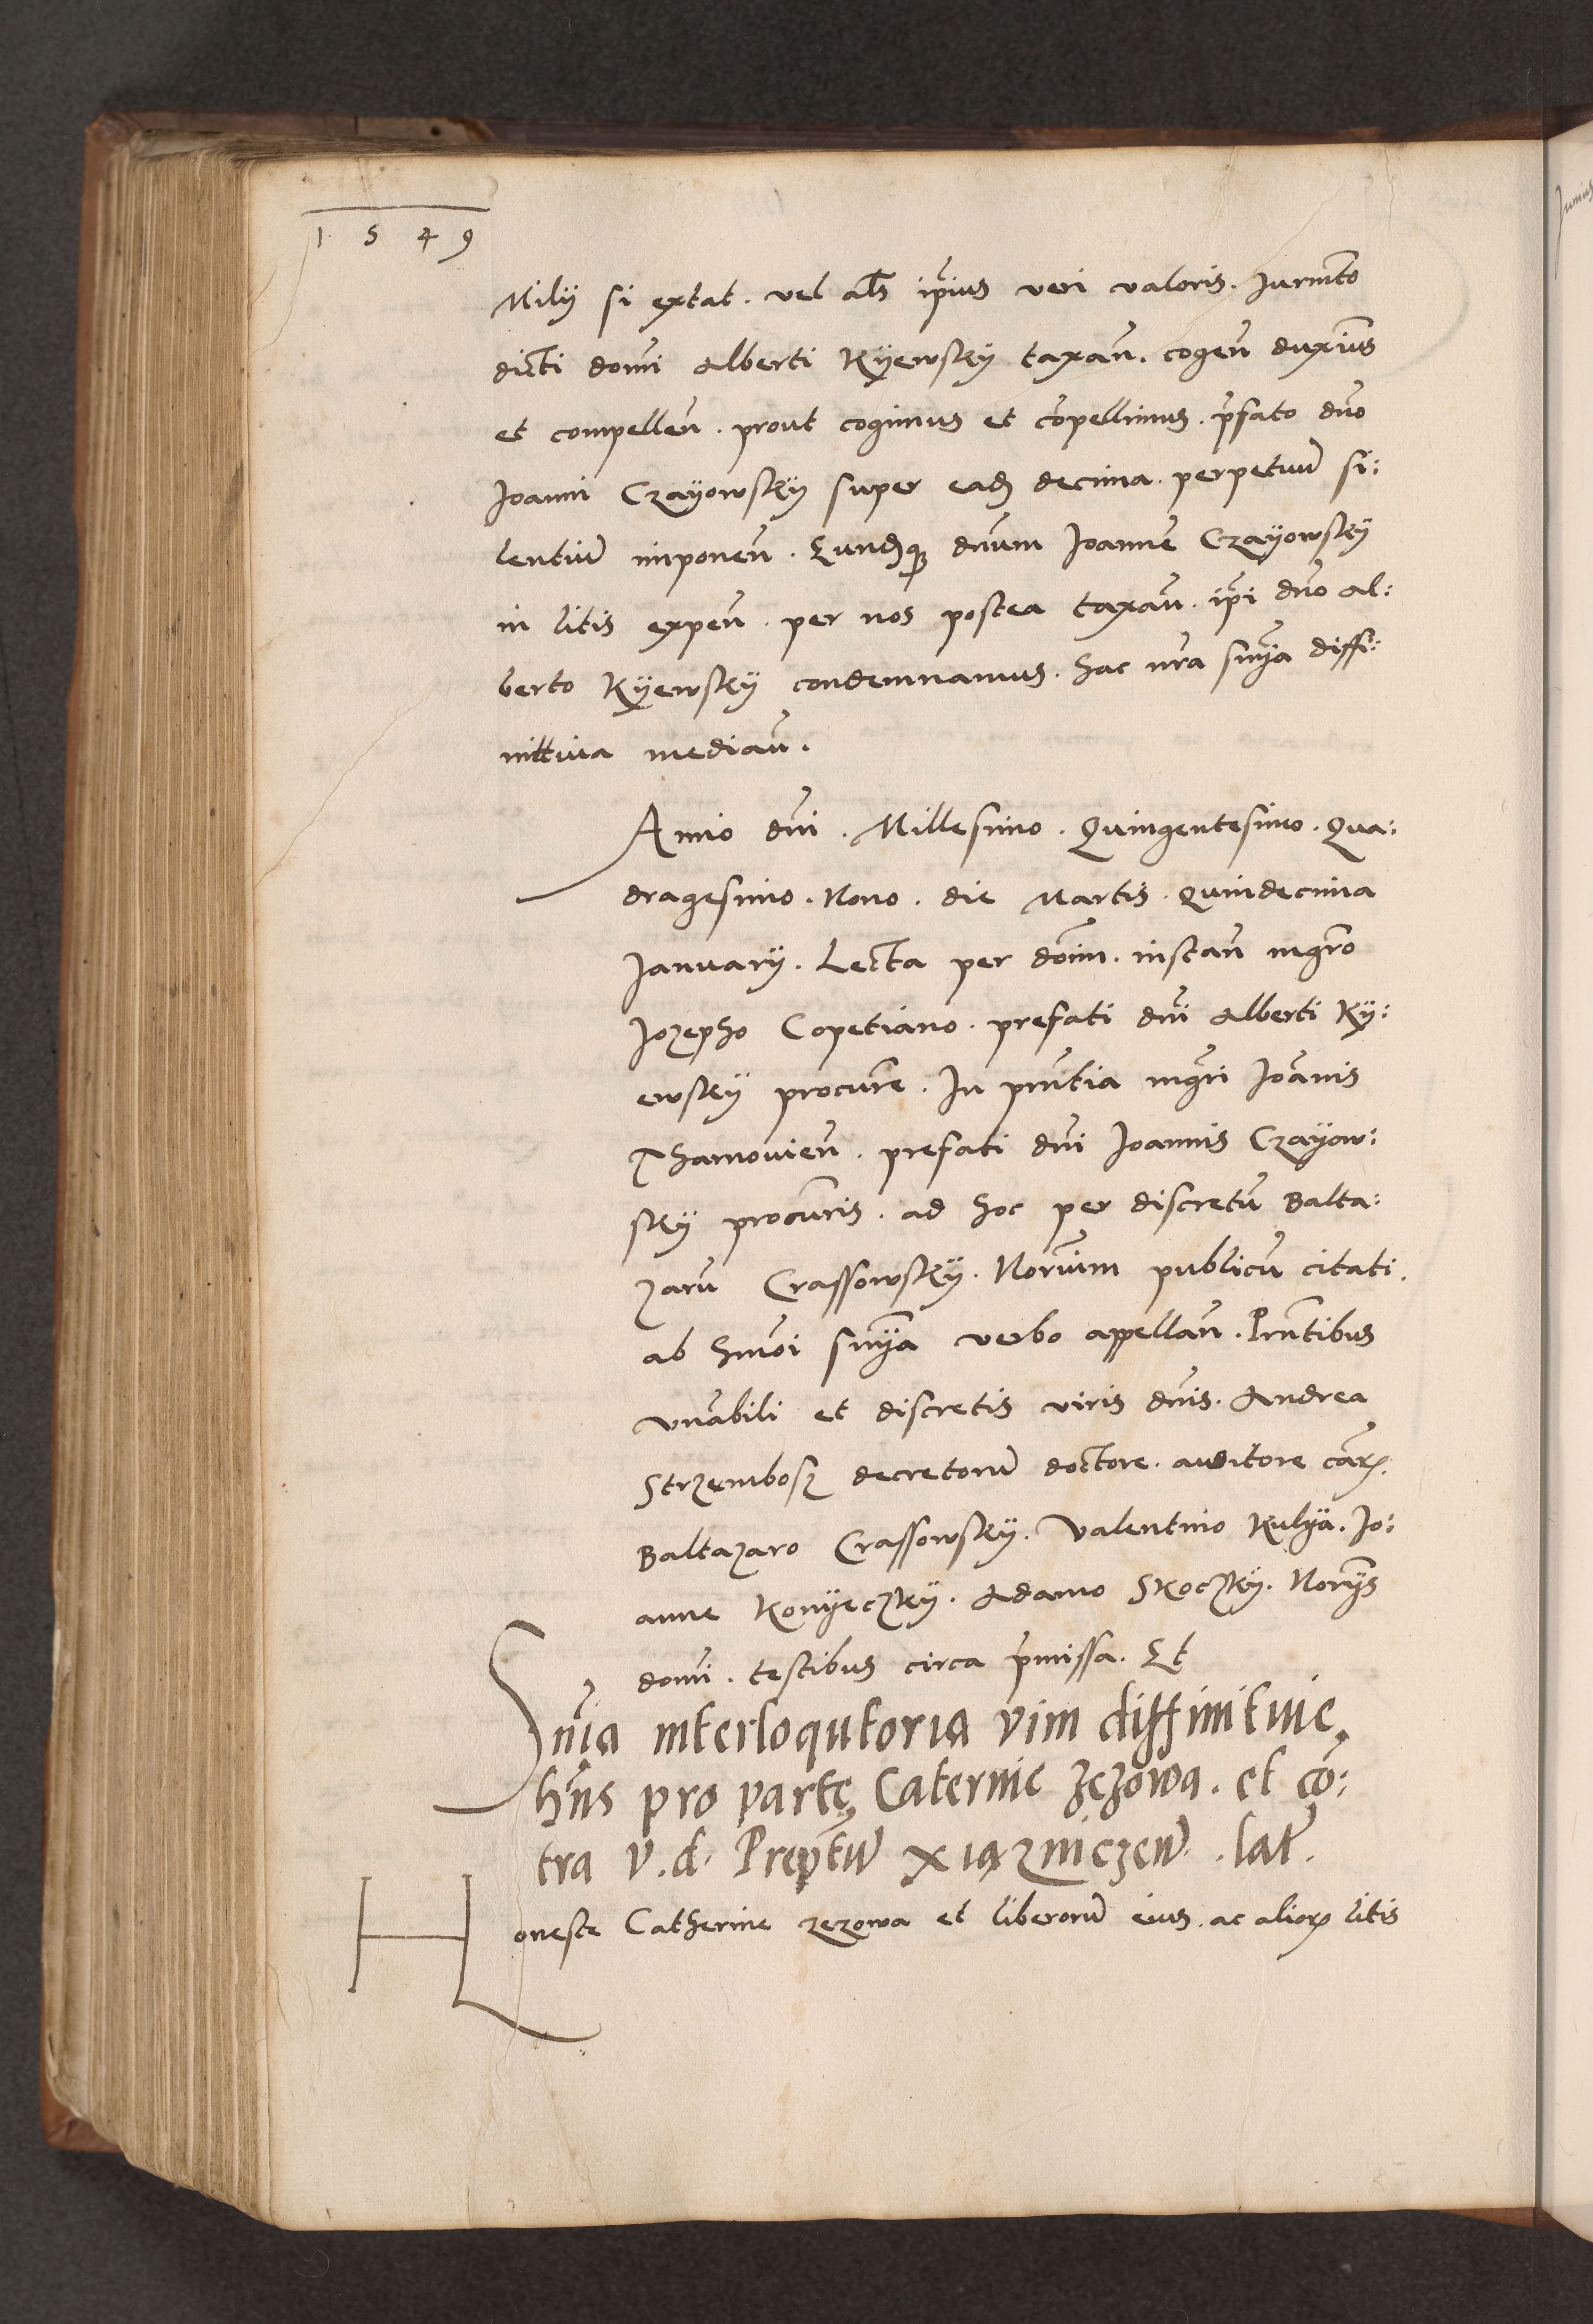 1549
Milij si extat. vel al's ip̃ius veri valoris. Iurm̃to
dicti dom̃i Alberti Kÿewskÿ taxan̄. cogen̄ duxim̃us
et compellen̄. prout cogimus et cõpellimus. p̃fato dño
Joanni Czaÿowskÿ super eadẽ decima. perpetuũ si:
lentiũ imponen̄. Eundẽq3 dñum Joannẽ Czaÿowskÿ
in litis expen̄. per nos postea taxan̄. ip̃i dño Al:
berto Kÿewskÿ condemnamus. hac nr̃a sñia diffi:
nitiua median̄.
Anno dñi. Millesimo. Quingentesimo. Qua:
dragesimo. Nono. die Martis. Quindecima
Januarij. Lecta per dom̃. instan̄ mgr̃o
Jozepho Copetiano. prefati dñi Alberti Kÿ:
ewskÿ procur̃e. In pñtia mgr̃i Joãnis
Tharnouien̄. prefati dñi Joannis Czaÿow:
skÿ procur̃is. ad hoc per discretũ Balta:
zarũ Crassowskÿ. Nor̃ium publicũ citati.
ab hm̃oi sñia verbo appellan̄. Pñtibus
vnãbili et discretis viris dñis. Andrea
Strzembosz decretorũ doctore. auditore cãrꝝ.
Baltazaro Crassowskÿ. Valentino Kulÿa. Jo:
anne Konÿeczkÿ. Adamo Skoczkÿ. Norijs
dom̃i. testibus circa p̃missa. Et
Sñia interloqutoria vim diffinitiuę
hñs pro partę Caterinę Zezowa. et cõ:
tra v. d. Prep̃tũ Xiązniczeñ. lat̃.
Honeste Catherine Zezowa et liberorũ eius. ac aliorꝝ litis